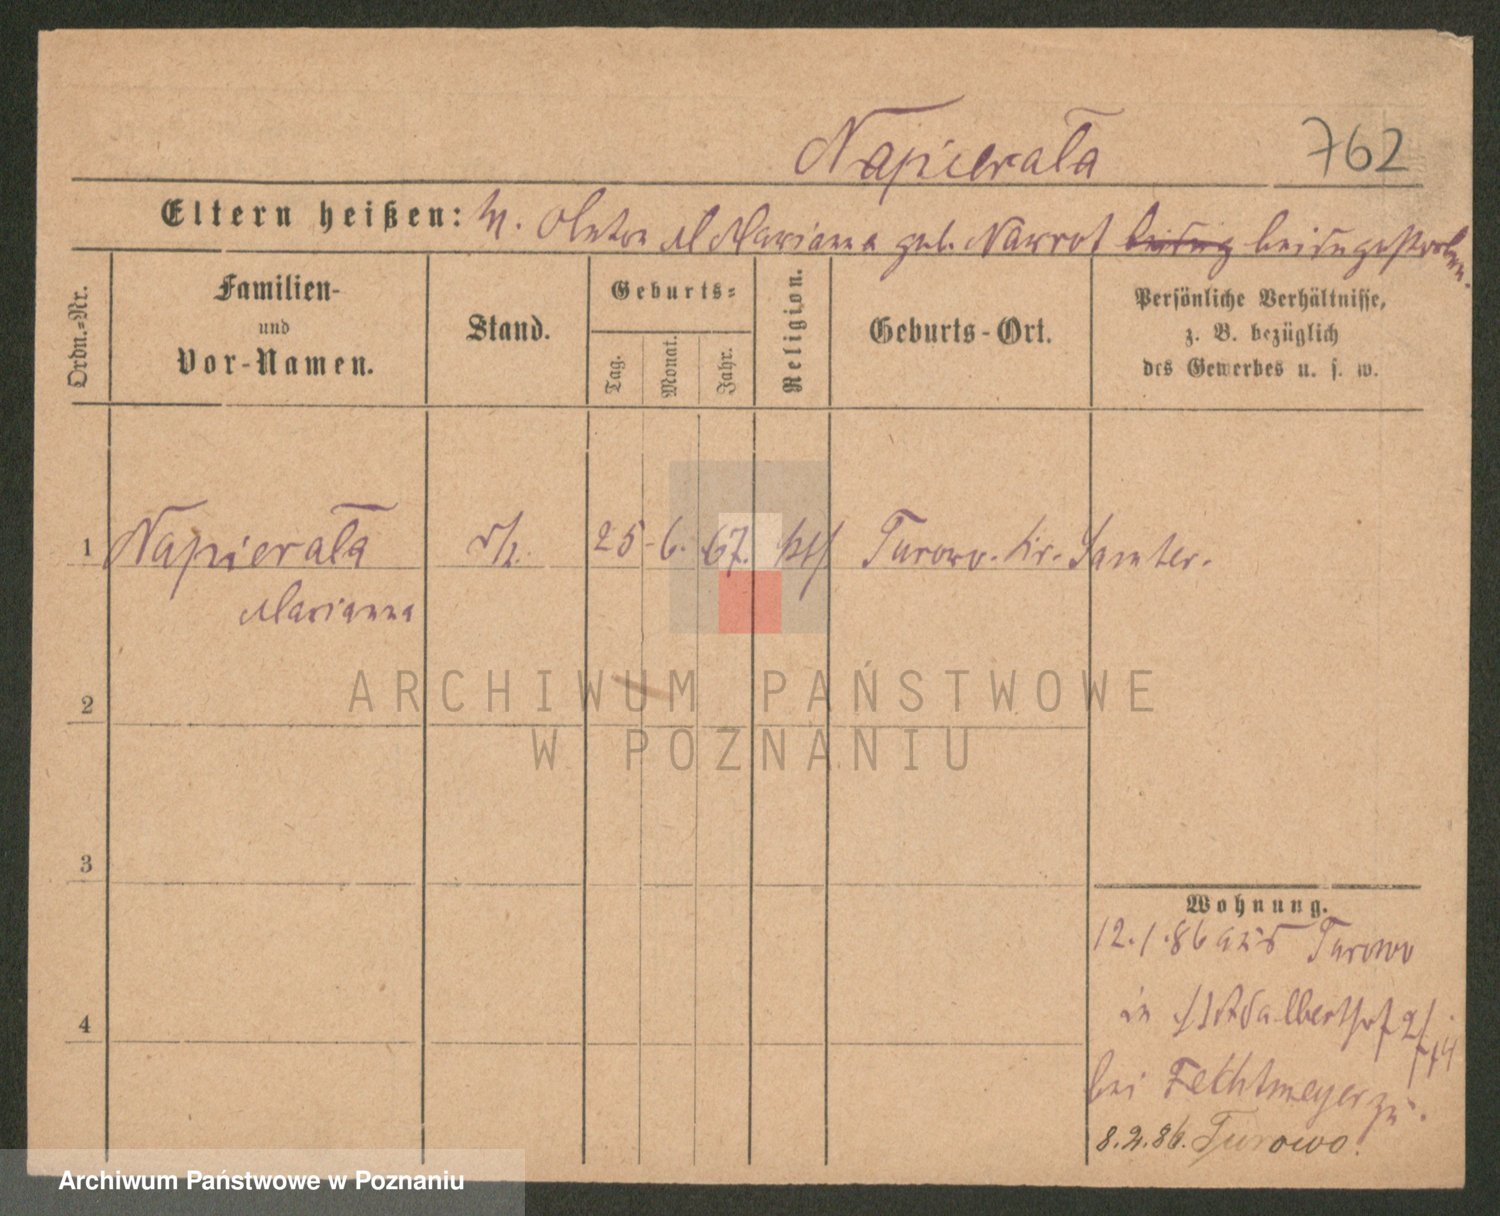 Napierała
762
Eltern heißen: M. Anton u Marianna geb. Nawrot beide gestorben.
Ordn.-Nr.
Familien-
und
Vor-Namen.
Stand.
Geburts-
Tag.
Monat.
Jahr.
Religion.
Geburts-Ort.
Persönliche Verhältnisse,
z. B. bezüglich
des Gewerbes u. s. w.
1 Napierała 25-6. 67. kth Turowo. Kr. Samter.
Marianna
2
3
4
Wohnung.
12.1.86 aus Turowo
in St Adalbertstr 2/
bei Fechtmeyer zu.
8.2.86. Turowo.
ARCHIWUM PAŃSTWOWE
W POZNANIU
Archiwum Państwowe w Poznaniu